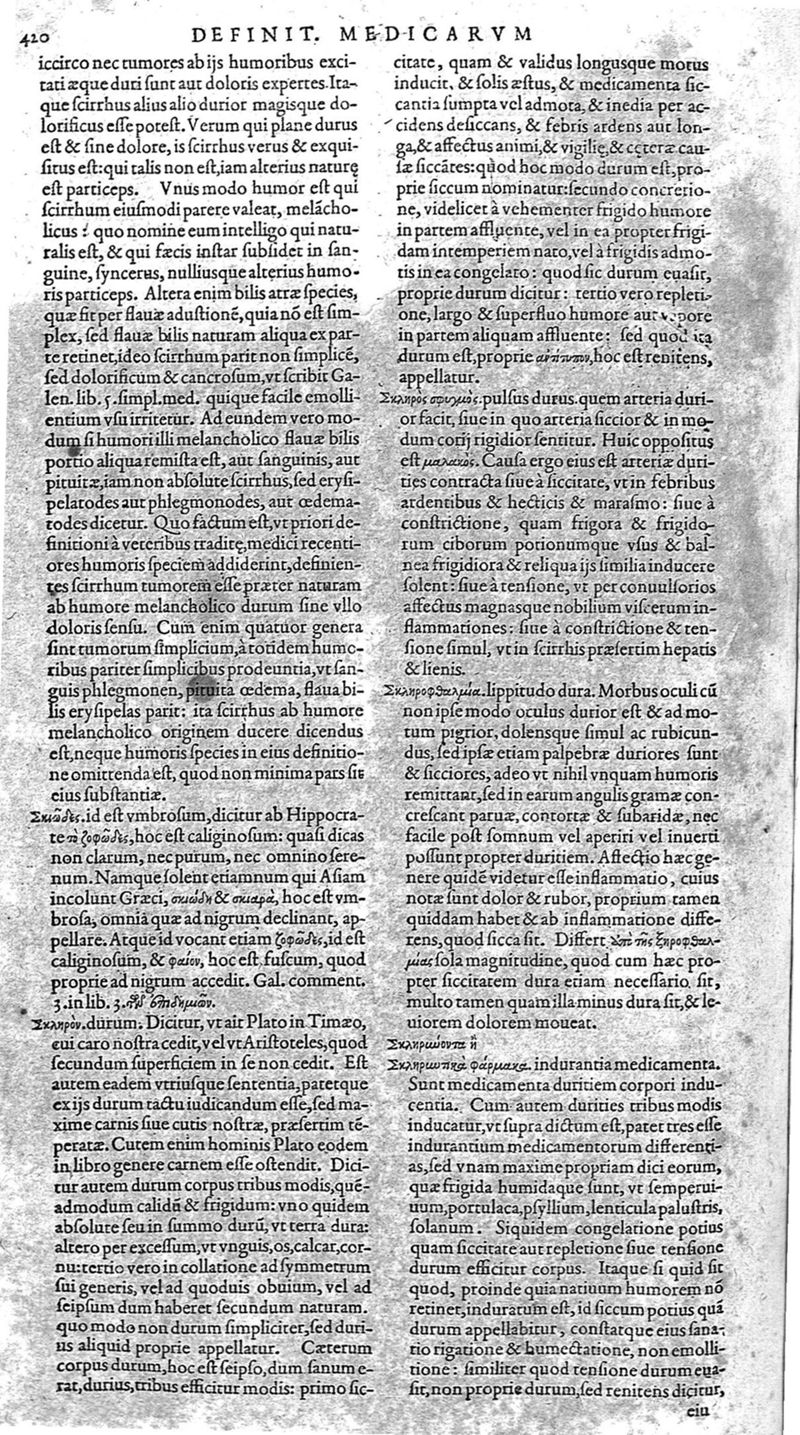 420
DEFINIT. MEDICARVM
iccirco nec tumores ab ijs humoribus exci-
tati æque duri ſunt aut doloris expertes. Ita-
que ſcirrhus alius alio durior magisque do-
lorificus eſſe poteſt. Verum qui plane durus
eſt & ſine dolore, is ſcirrhus verus & exqui-
ſitus eſt: qui talis non eſt, iam alterius naturę
eſt particeps. Vnus modo humor eſt qui
ſcirrhum eiuſmodi parere valeat, melācho-
licus: quo nomine eum intelligo qui natu-
ralis eſt, & qui fæcis inſtar ſubſidet in ſan-
guine, ſyncerus, nulliuſque alterius humo-
ris particeps. Altera enim bilis atræ ſpecies,
quæ fit per flauæ aduſtionē, quia nō eſt ſim-
plex, ſed flauæ bilis naturam aliqua ex par-
te retinet, ideo ſcirrhum parit non ſimplicē,
ſed dolorificum & cancroſum, vt ſcribit Ga-
len. lib. 5. ſimpl. med. quique facile emolli-
entium vſu irritetur. Ad eundem vero mo-
dum ſi humori illi melancholico flauæ bilis
portio aliqua remiſta eſt, aut ſanguinis, aut
pituitæ, iam non abſolute ſcirrhus, ſed eryſi-
pelatodes aut phlegmonodes, aut œdema-
todes dicetur. Quo factum eſt, vt priori de-
finitioni à veteribus traditę, medici recenti-
ores humoris ſpeciem addiderint, definien-
tes ſcirrhum tumorem eſſe præter naturam
ab humore melancholico durum ſine vllo
doloris ſenſu. Cum enim quatuor genera
ſint tumorum ſimplicium, à totidem humo-
ribus pariter ſimplicibus prodeuntia, vt ſan-
guis phlegmonen, pituita œdema, flaua bi-
lis eryſipelas parit: ita ſcirrhus ab humore
melancholico originem ducere dicendus
eſt, neque humoris ſpecies in eius definitio-
ne omittenda eſt, quod non minima pars ſit
eius ſubſtantiæ.
Σκιῶδες. id eſt vmbroſum, dicitur ab Hippocra-
te τὸ ζοφῶδες, hoc eſt caliginoſum: quaſi dicas
non clarum, nec purum, nec omnino ſere-
num. Namque ſolent etiamnum qui Aſiam
incolunt Græci, σκιώδη & σκιαρὰ, hoc eſt vm-
broſa, omnia quæ ad nigrum declinant, ap-
pellare. Atque id vocant etiam ζοφῶδες, id eſt
caliginoſum, & φαιὸν, hoc eſt fuſcum, quod
proprie ad nigrum accedit. Gal. comment.
3. in lib. 3. τῶν ἐπιδημιῶν.
Σκληρὸν. durum. Dicitur, vt ait Plato in Timæo,
cui caro noſtra cedit, vel vt Ariſtoteles, quod
ſecundum ſuperficiem in ſe non cedit. Eſt
autem eadem vtriuſque ſententia, patetque
ex ijs durum tactu iudicandum eſſe, ſed ma-
xime carnis ſiue cutis noſtræ, præſertim tē-
peratæ. Cutem enim hominis Plato eodem
in libro genere carnem eſſe oſtendit. Dici-
tur autem durum corpus tribus modis, quē-
admodum calidū & frigidum: vno quidem
abſolute ſeu in ſummo durū, vt terra dura:
altero per exceſſum, vt vnguis, os, calcar, cor-
nu: tertio vero in collatione ad ſymmetrum
ſui generis, vel ad quoduis obuium, vel ad
ſeipſum dum haberet ſecundum naturam.
quo modo non durum ſimpliciter, ſed duri-
us aliquid proprie appellatur. Cæterum
corpus durum, hoc eſt ſeipſo, dum ſanum e-
rat, durius, tribus efficitur modis: primo ſic-
citate, quam & validus longuſque motus
inducit, & ſolis æſtus, & medicamenta ſic-
cantia ſumpta vel admota, & inedia per ac-
cidens deſiccans, & febris ardens aut lon-
ga, & affectus animi, & vigilię, & cęteræ cau-
ſæ ſiccātes: quod hoc modo durum eſt, pro-
prie ſiccum nominatur: ſecundo concretio-
ne, videlicet à vehementer frigido humore
in partem affluente, vel in ea propter frigi-
dam intemperiem nato, vel à frigidis admo-
tis in ea congelato: quod ſic durum euaſit,
proprie durum dicitur: tertio vero repleti-
one, largo & ſuperfluo humore aut vapore
in partem aliquam affluente: ſed quod ita
durum eſt, proprie ἀντίτυπον, hoc eſt renitens,
appellatur.
Σκληρὸς σφυγμὸς. pulſus durus. quem arteria duri-
or facit, ſiue in quo arteria ſiccior & in mo-
dum corij rigidior ſentitur. Huic oppoſitus
eſt μαλακὸς. Cauſa ergo eius eſt arteriæ duri-
ties contracta ſiue à ſiccitate, vt in febribus
ardentibus & hecticis & maraſmo: ſiue à
conſtrictione, quam frigora & frigido-
rum ciborum potionumque vſus & bal-
nea frigidiora & reliqua ijs ſimilia inducere
ſolent: ſiue à tenſione, vt per conuulſorios
affectus magnaſque nobilium viſcerum in-
flammationes: ſiue à conſtrictione & ten-
ſione ſimul, vt in ſcirrhis præſertim hepatis
& lienis.
Σκληροφθαλμία. lippitudo dura. Morbus oculi cū
non ipſe modo oculus durior eſt & ad mo-
tum pigrior, dolenſque ſimul ac rubicun-
dus, ſed ipſæ etiam palpebræ duriores ſunt
& ſicciores, adeo vt nihil vnquam humoris
remittant, ſed in earum angulis gramæ con-
creſcant paruæ, contortæ & ſubaridæ, nec
facile poſt ſomnum vel aperiri vel inuerti
poſſunt propter duritiem. Affectio hæc ge-
nere quidē videtur eſſe inflammatio, cuius
notæ ſunt dolor & rubor, proprium tamen
quiddam habet & ab inflammatione diffe-
rens, quod ſicca ſit. Differt ἀπὸ τῆς ξηροφθαλ-
μίας ſola magnitudine, quod cum hæc pro-
pter ſiccitatem dura etiam neceſſario ſit,
multo tamen quam illa minus dura ſit, & le-
uiorem dolorem moueat.
Σκληρωύοντα ἢ
Σκληρωτικὰ φάρμακα. indurantia medicamenta.
Sunt medicamenta duritiem corpori indu-
centia. Cum autem durities tribus modis
inducatur, vt ſupra dictum eſt, patet tres eſſe
indurantium medicamentorum differenti-
as, ſed vnam maxime propriam dici eorum,
quæ frigida humidaque ſunt, vt ſemperui-
uum, portulaca, pſyllium, lenticula paluſtris,
ſolanum. Siquidem congelatione potius
quam ſiccitate aut repletione ſiue tenſione
durum efficitur corpus. Itaque ſi quid ſit
quod, proinde quia natiuum humorem nō
retinet, induratum eſt, id ſiccum potius quā
durum appellabitur, conſtatque eius ſana-
tio rigatione & humectatione, non emolli-
tione: ſimiliter quod tenſione durum eua-
ſit, non proprie durum, ſed renitens dicitur,
eiu